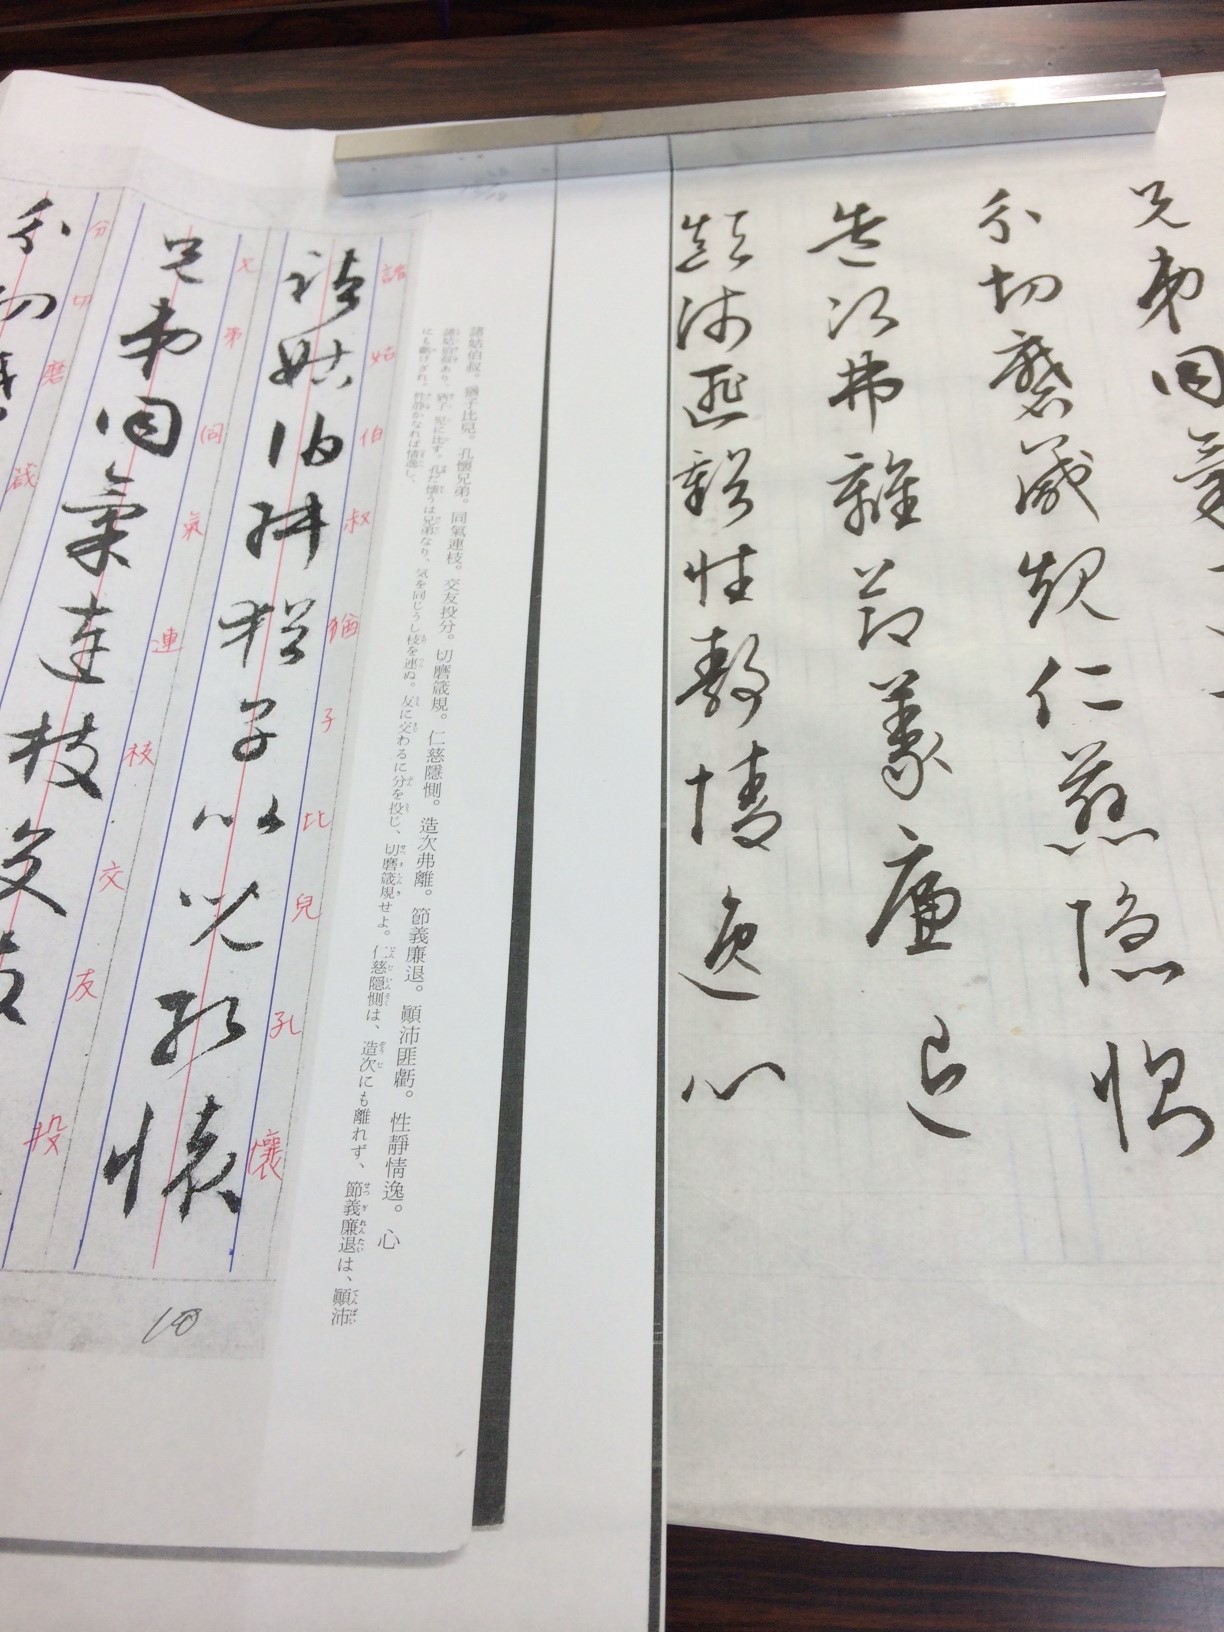 兄弟同氣
分切磨箴規仁慈隱惻
造次弗離節義廉退
顛沛匪虧性靜情逸心
諸姑伯叔。猶子比兒。孔懷兄弟。同氣連枝。交友投分。切磨箴規。仁慈隱惻。造次弗離。節義廉退。顛沛匪虧。性靜情逸。心
諸姑伯叔あり、猶子児に比す。孔だ懐うは兄弟なり、気を同じうし枝を連ぬ。友に交わるに分を投じ、切磨箴規せよ。仁慈隠惻は、造次にも離れず、節義廉退は、顚沛
にも虧けざれ。性静かなれば情逸し、
諸姑伯叔猶子比兒孔懷
諸姑伯叔猶子比兒孔懷
兄弟同氣連枝交友投
兄弟同氣連枝交友
分切磨箴
分切磨
10